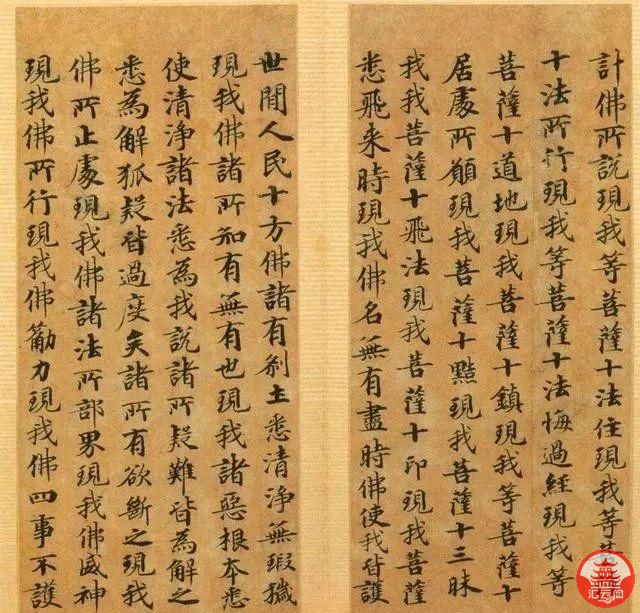 計佛所說現我等菩薩十法住現我等
十法所行現我等菩薩十法悔過經現我等
菩薩十道地現我菩薩十鎮現我等菩薩十
居處所願現我菩薩十黠現我菩薩十三昧
我我菩薩十飛法現我菩薩十印現我菩薩
悉飛来時現我佛名無有盡時佛使我付護
世間人民十方佛諸有剎土悉清淨無瑕穢
現我佛諸所知有無有也現我諸惡根本悉
使清淨諸法悉為我說諸所疑難皆為解之
悉為解狐疑皆過度矣諸所有欲斷之現我
佛所止處現我佛諸法所部界現我佛威神
現我佛所行現我佛勸力現我佛四事不護
汇云阁